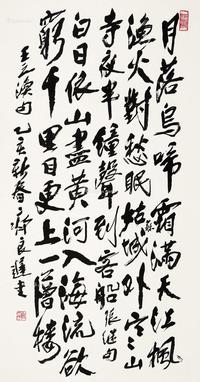 月落烏啼霜滿天江楓
漁火對愁眠姑蘇城外寒山
寺夜半鐘聲到客船張継句
白日依山盡黃河入海流欲
窮千里目更上一層樓
王之渙句乙亥新春齊良遲書